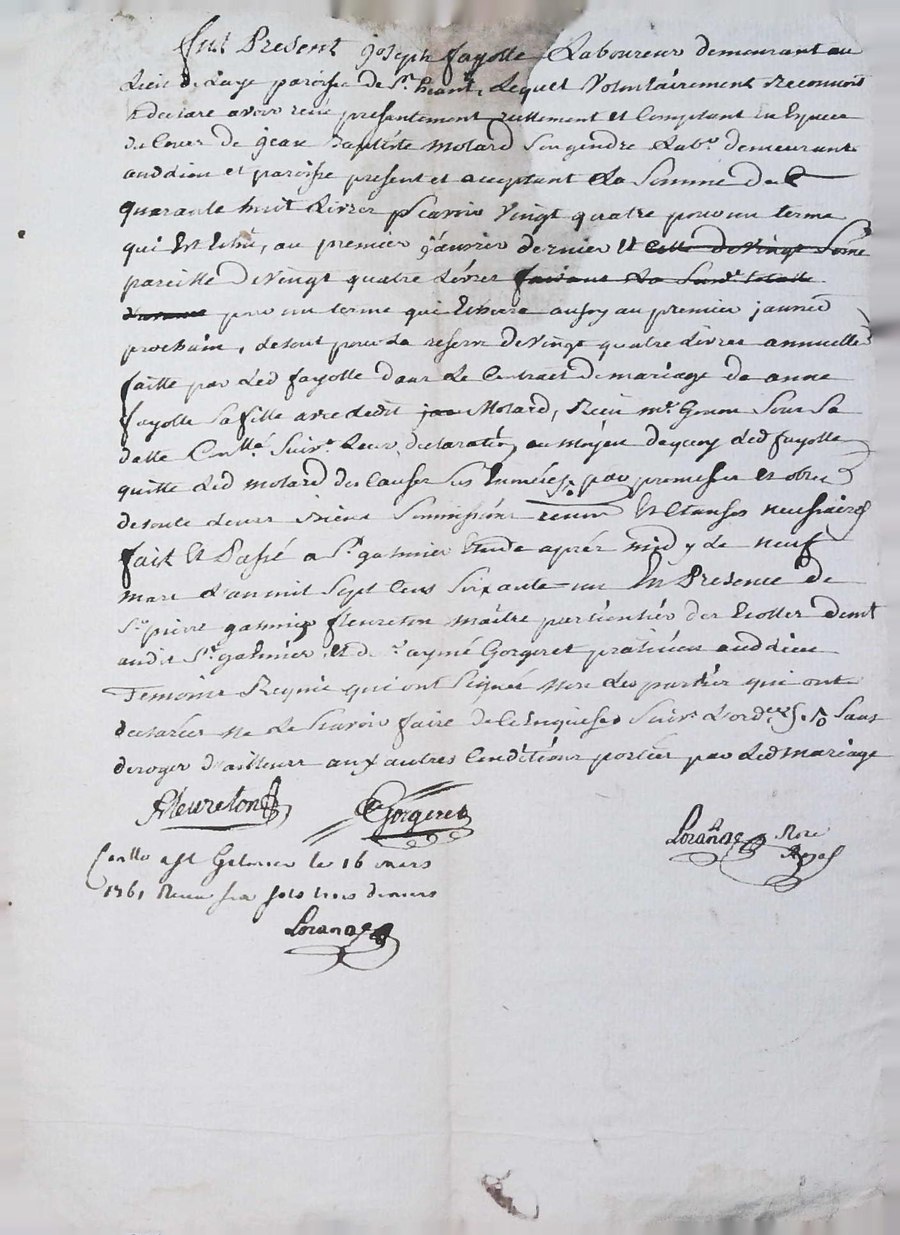 fut Present joseph fayolle Laboureur demeurant au
Lieu de Lage paroisse de St heant, Lequel Volontairement reconnoit
& declare avoir receu presentement reellement et Comptant En Espece
de Cours de jean Baptiste Molard Son gendre Labr demeurant
auddieu et paroisse present et aceptant La Somme de
quarante huit Livres scavoir Vingt quatre pour un terme
qui Est Echu, au premier janvier dernier et celle de Vingt Some
pareille de Vingt quatre Livres
pour un terme qui au premier janvier
prochain, detout pour La reserve de Vingt quatre Livres annuelle
faitte par Led fayolle dans Le Contract de mariage de anne
fayolle Sa fille avec ledit Molard, Receu me Sous Sa
datte Conllé Suivt Leur declaration, au moyen dequoy Led fayolle
quitte Led molard des Causes Sus Enoncées, par promesses et
de tous Leurs Biens Soumissions renon et Clauses
fait et Passé a St galmier Etude aprés midy Le neuf
mars L'an mil Sept Cens Soixante un En Presence de
Sr pierre galmier fleureton maitre particulier des Ecolles demt
audit St galmier, et de Sr aymé Gorgeret praticien auddieu
Temoins Requis qui ont Signé non Les parties qui ont
declarées ne Le Scavoir faire de ce Enquises Suivt L'ord Sans
deroger d'ailleurs aux autres Conditions portées par Led mariage
fleureton Gorgeret
Loranas Nore Royal
Conllé a St Galmier le 16 mars
1761 Receu six sols trois deniers
Loranas